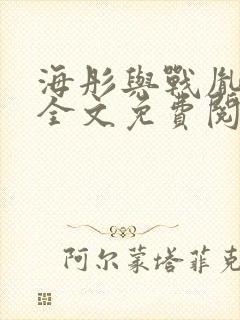 海彤與戰胤
全文免費閱
阿尔蒙塔菲克